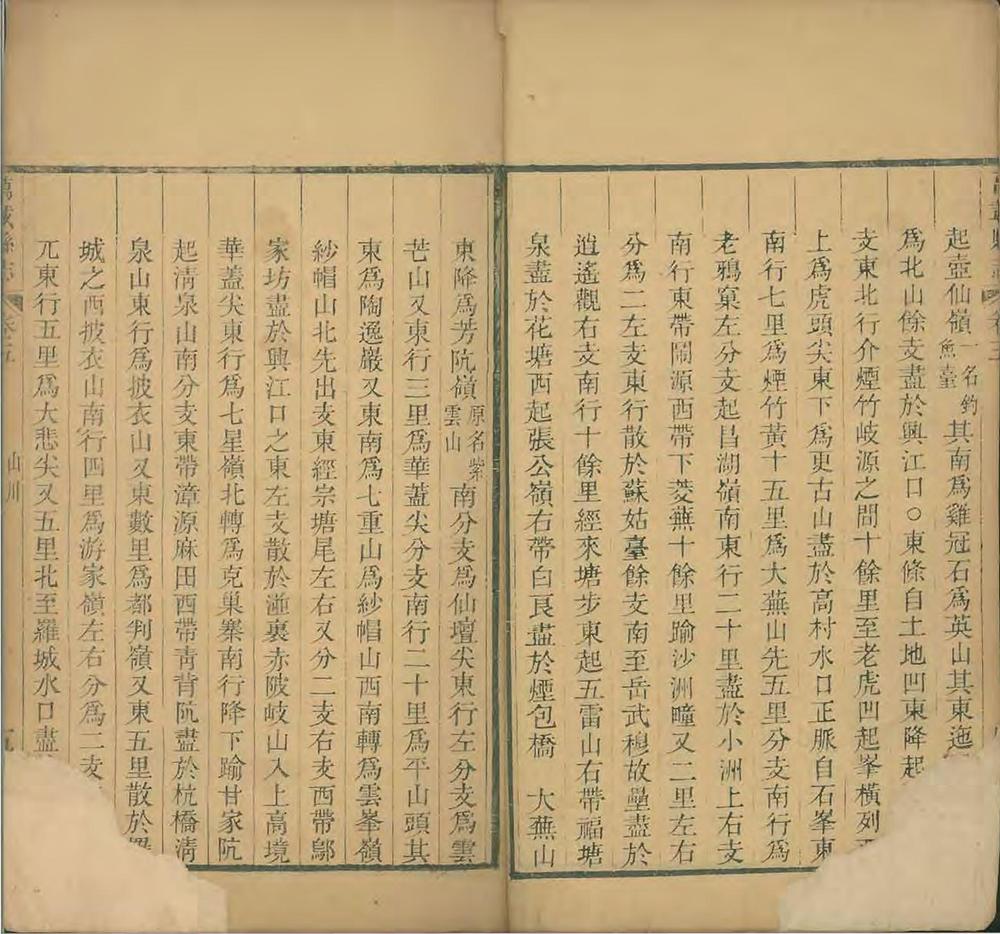 起壺仙嶺一名釣魚臺其南為雞冠石為英山其東迤
為北山餘支盡於興江口○東條自土地凹東降起
支東北行介煙竹岐源之間十餘里至老虎凹起峯橫列
上為虎頭尖東下為更古山盡於高村水口正脈自石峯東
南行七里為煙竹黃十五里為大蕪山先五里分支南行為
老鴉窠左分支起昌湖嶺南東行二十里盡於小洲上右支
南行東帶鬧源西帶下菱蕪十餘里踰沙洲疃又二里左右
分為二左支東行散於蘇姑臺餘支南至岳武穆故壘盡於
逍遙觀右支南行十餘里經來塘步東起五雷山右帶福塘
泉盡於花塘西起張公嶺右帶白良盡於煙包橋 大蕪山
東降為芳阬嶺原名紫雲山南分支為仙壇尖東行左分支為雲
芒山又東行三里為華蓋尖分支南行二十里為平山頭其
東為陶逸巖又東南為七重山為紗帽山西南轉為雲峯嶺
紗帽山北先出支東經宗塘尾左右又分二支右支西帶鄔
家坊盡於興江口之東左支散於湴裏赤陂岐山入上高境
華蓋尖東行為七星嶺北轉為克巢寨南行降下踰甘家阬
起淸泉山南分支東帶漳源麻田西帶靑背阬盡於杭橋淸
泉山東行為披衣山又東數里為都判嶺又東五里散於
城之西披衣山南行四里為游家嶺左右分為二支
兀東行五里為大悲尖又五里北至羅城水口盡
萬載縣志 卷三 山川